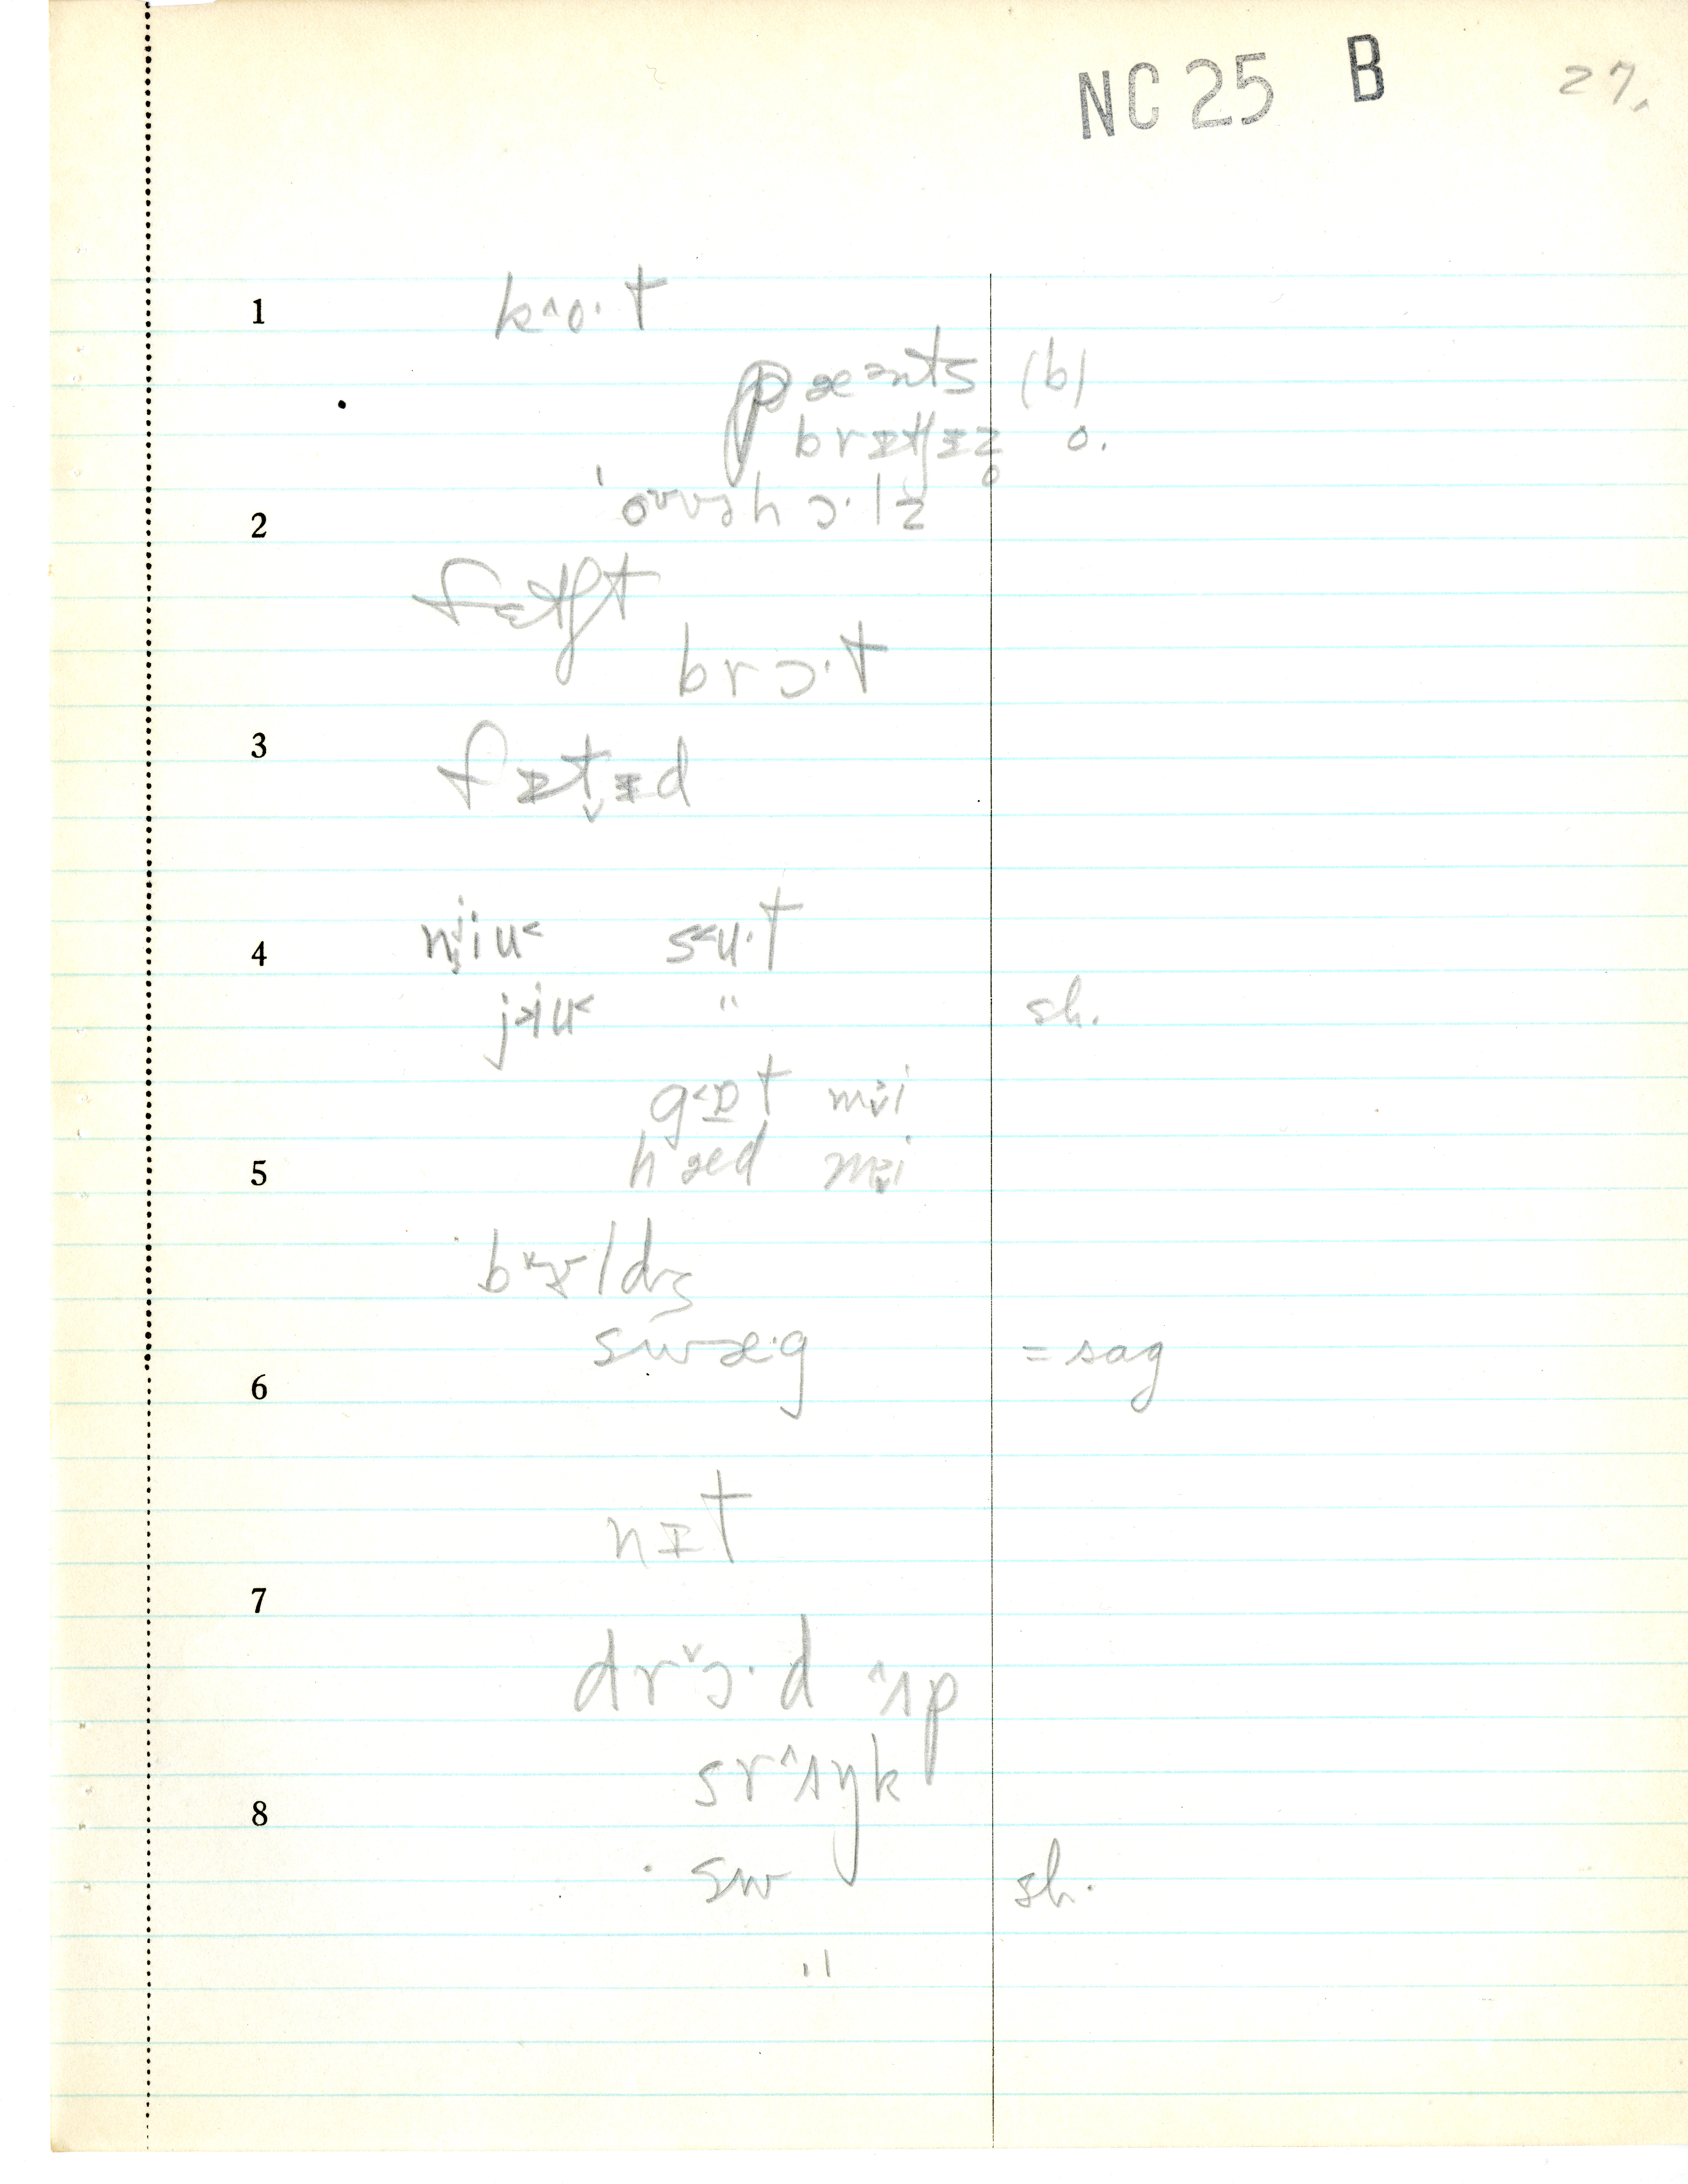 NC 25 B 27.
1 k^o·t
pæənts (b)
brɪtʃɪz̥ o.
2 ˈoᵛvəhɔ·lz
fɛtʃt
brɔ·t
3 fɪt̬ɪd
4 su·t
" sh.
g˂ɒt mi
5 hæd mi
swæ·g = sag
6
nɪt
7
drᵛɔ·d ^ʌp
sr^ʌŋk
8
sw sh.
"